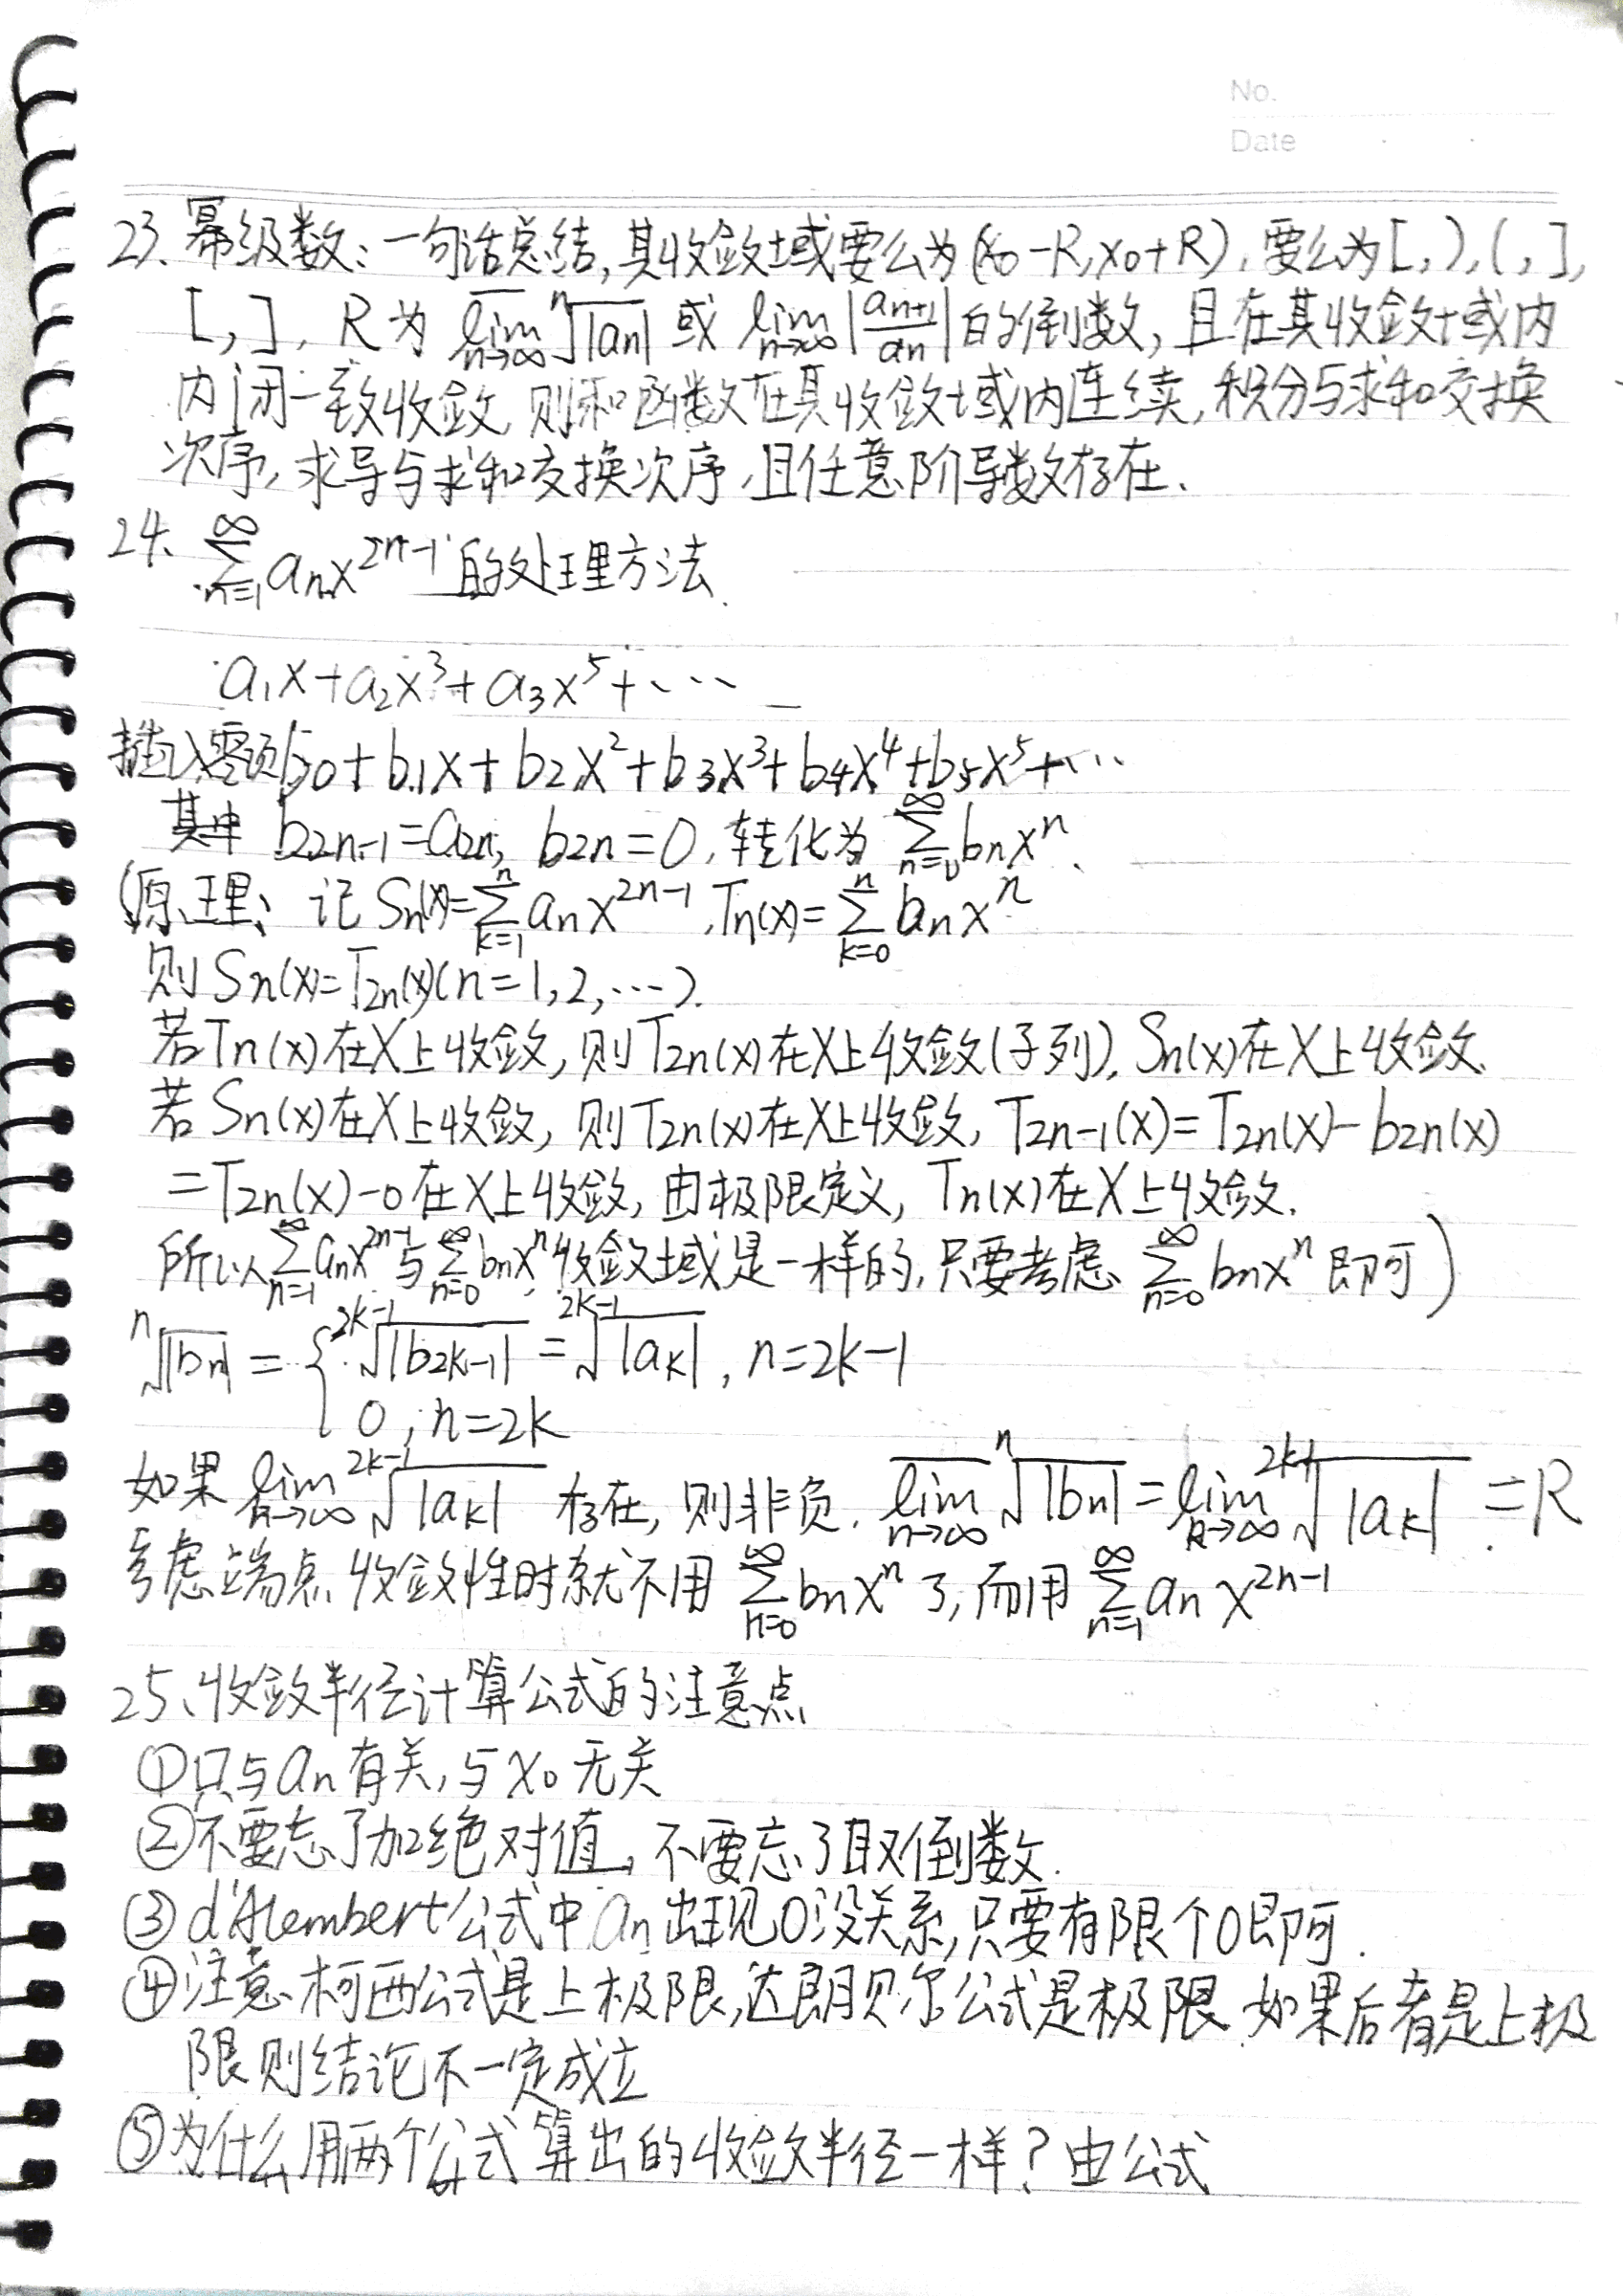 No.
Date
23. 幂级数：一句话总结，其收敛域或要么为(x₀-R,x₀+R)，要么为[,),(,],
[,]，R为 \overline{lim}_{n→∞} ⁿ√|aₙ| 或 lim_{n→∞} |aₙ₊₁/aₙ| 的倒数，且在其收敛域内
内闭一致收敛，则和函数在其收敛域内连续，积分与求和交换
次序，求导与求和交换次序，且任意阶导数存在.
24、∑_{n=1}^{∞} aₙx^{2n-1} 的处理方法.
a₁x+a₂x³+a₃x⁵+⋯
插入零项 b₀+b₁x+b₂x²+b₃x³+b₄x⁴+b₅x⁵+⋯
其中 b₂ₙ₋₁=a₂ₙ, b₂ₙ=0，转化为 ∑_{n=0}^{∞} bₙxⁿ、
(原理：记 Sₙ(x)=∑_{k=1}^{n} aₙx^{2n-1}，Tₙ(x)=∑_{k=0}^{n} bₙxⁿ
则 Sₙ(x)=T₂ₙ(x)(n=1,2,⋯).
若Tₙ(x)在X上收敛，则T₂ₙ(x)在X上收敛(子列)，Sₙ(x)在X上收敛.
若Sₙ(x)在X上收敛，则T₂ₙ(x)在X上收敛，T₂ₙ₋₁(x)=T₂ₙ(x)-b₂ₙ(x)
=T₂ₙ(x)-0在X上收敛，由极限定义，Tₙ(x)在X上收敛.
所以 ∑_{n=1}^{∞} aₙx^{2n-1} 与 ∑_{n=0}^{∞} bₙxⁿ 收敛域是一样的，只要考虑 ∑_{n=0}^{∞} bₙxⁿ 即可)
ⁿ√|bₙ| = { ^{2k-1}√|b₂ₖ₋₁| = ^{2k-1}√|aₖ|, n=2k-1
0, n=2k
如果 lim_{n→∞} ^{2k-1}√|aₖ| 存在，则非负. \overline{lim}_{n→∞} ⁿ√|bₙ| = lim_{k→∞} ^{2k-1}√|aₖ| = R
考虑端点收敛性时就不用 ∑_{n=0}^{∞} bₙxⁿ 了，而用 ∑_{n=1}^{∞} aₙx^{2n-1}
25、收敛半径计算公式的注意点
①只与aₙ有关，与x₀无关
②不要忘了加绝对值，不要忘了取倒数.
③d'Alembert公式中aₙ出现0没关系，只要有限个0即可.
④注意柯西公式是上极限，达朗贝尔公式是极限，如果后者是上极
限则结论不一定成立
⑤为什么用两个公式算出的收敛半径一样？由公式